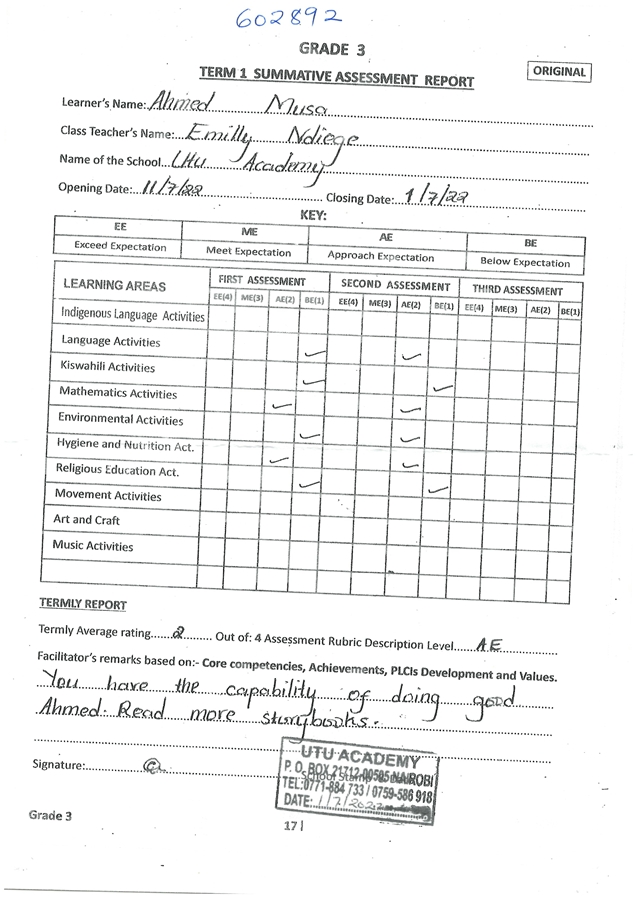 602892
GRADE 3
TERM 1 SUMMATIVE ASSESSMENT REPORT
ORIGINAL
Learner's Name: Ahmed Musa
Class Teacher's Name: Emilly Ndiege
Name of the School Utu Academy
Opening Date: 11/7/22 Closing Date: 1/7/22
KEY:
EE ME AE BE
Exceed Expectation Meet Expectation Approach Expectation Below Expectation
LEARNING AREAS FIRST ASSESSMENT SECOND ASSESSMENT THIRD ASSESSMENT
EE(4) ME(3) AE(2) BE(1) EE(4) ME(3) AE(2) BE(1) EE(4) ME(3) AE(2) BE(1)
Indigenous Language Activities
Language Activities ✓ ✓
Kiswahili Activities ✓ ✓
Mathematics Activities ✓ ✓
Environmental Activities ✓ ✓
Hygiene and Nutrition Act. ✓ ✓
Religious Education Act. ✓ ✓
Movement Activities
Art and Craft
Music Activities
TERMLY REPORT
Termly Average rating 2 Out of: 4 Assessment Rubric Description Level AE
Facilitator's remarks based on:- Core competencies, Achievements, PLCIs Development and Values.
You have the capability of doing good
Ahmed. Read more storybooks.
Signature:
UTU ACADEMY
P. O. BOX 21712-00505 NAIROBI
School Stamp
TEL:0771-884 733 / 0759-586 918
DATE: 1/7/2022
Grade 3
17|